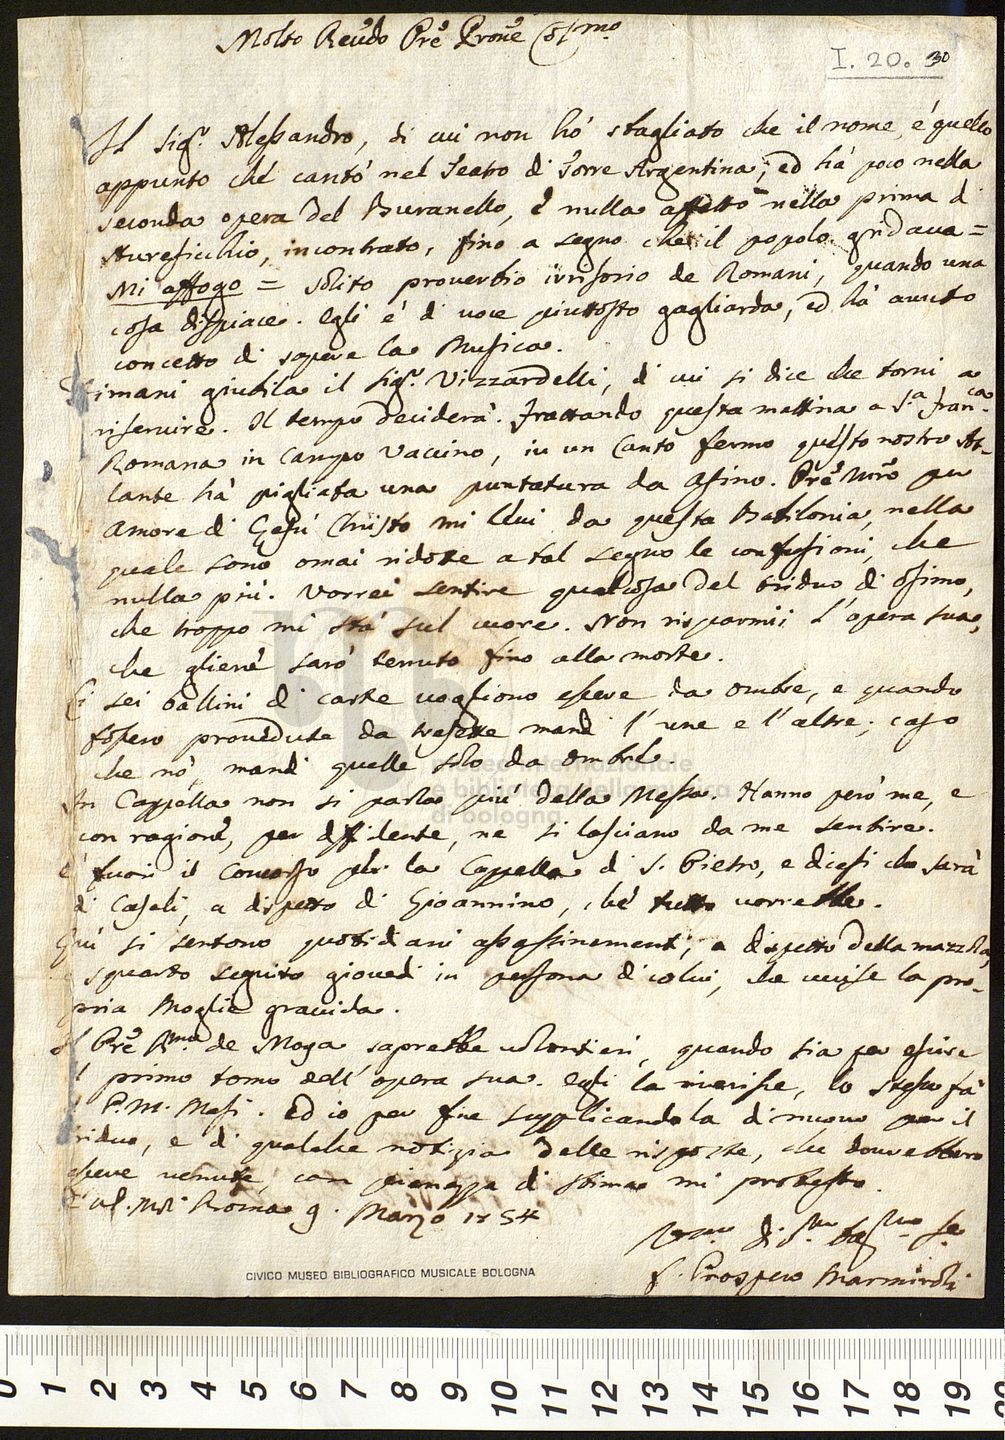 Molto Reũdo Prẽ Prone Cõlmo
I. 20. 30
Il Sig.r Alessandro, di cui non hò sbagliato che il nome, è quello
appunto che cantò nel Teatro di Torre Argentina; ed hà poco nella
seconda opera del Buranello, e nulla affatto nella prima d
Aureficchio, incontrato, fino a segno che il popolo gridava =
Mi affogo = solito proverbio irrisorio de Romani, quando una
cosa dispiace. Egli è di voce piuttosto gagliarda, ed hà avuto
concetto di sapere la Musica.
Rimani giubila il Sig.r Vizzardelli, di cui si dice che torni a
riservire. Il tempo deciderà. Trattando questa mattina a S.a Fran.ca
Romana in Campo Vaccino, in un Canto fermo questo nostro At-
lante hà pigliata una puntatura da asino. Prẽ Nrõ per
amore di Gesù Christo mi levi da questa Babilonia, nella
quale sono omai ridotte a tal segno le confusioni, che
nulla più. Vorrei sentire qualcosa del triduo di Osimo,
che troppo mi stà sul cuore. Non risparmii l'opera sua,
che glienè sarò tenuto fino alla morte.
Li sei ballini di carte vogliono essere da ombre, e quando
fossero provedute da tresette mandi l'une e l'altre; caso
che nò, mandi quelle solo da ombre.
In Cappella non si parla più della Messa. Hanno però me, e
con ragione, per diffidente, ne si lasciano da me sentire.
È fuori il Concorso per la Cappella di S. Pietro, e dicesi che sarà
di Casali, a dispetto di Gioannino, che tutto vorrebbe.
Quì si sentono quotidiani assassinementi, a dispetto della mazzola,
e squarto seguito giovedì in persona di colui, che uccise la pro-
pria Moglie gravida.
Il Prẽ Rmo de Moga saprebbe volontieri, quando sia per escire
il primo tomo dell'opera sua. Egli la riverisce, lo stesso fà
il P. M. Masi. Ed io per fine supplicandola di nuovo per il
triduo, e di qualche notizia delle risposte, che dovrebbero
essere venute, con pienezza di stima mi protesto.
Roma 9. Marzo 1754
f. Prospero Marmiroli
CIVICO MUSEO BIBLIOGRAFICO MUSICALE BOLOGNA
museo internazionale
e biblioteca della musica
di bologna
0 1 2 3 4 5 6 7 8 9 10 11 12 13 14 15 16 17 18 19 20